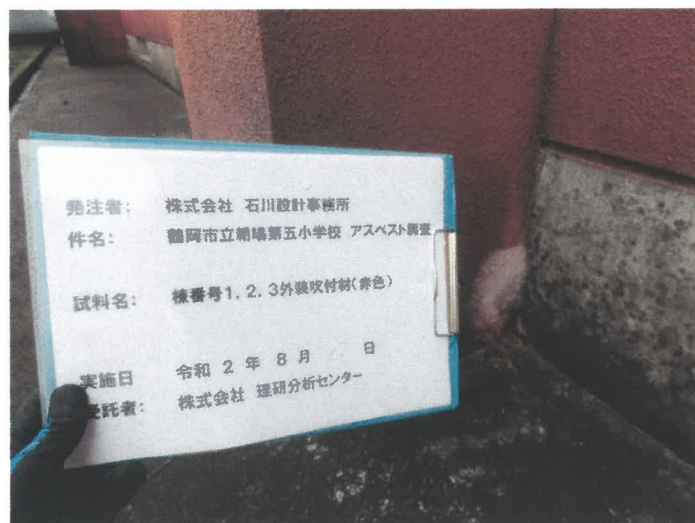 発注者： 株式会社 石川設計事務所
件名： 鶴岡市立朝暘第五小学校 アスベスト調査
試料名： 棟番号1．2．3外装吹付材(赤色)
実施日 令和 2 年 8 月 日
受託者： 株式会社 理研分析センター